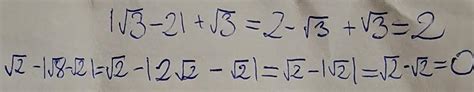 |√3-2|+√3=2-√3+√3=2
√2-|√8-√2|=√2-|2√2-√2|=√2-|√2|=√2-√2=0